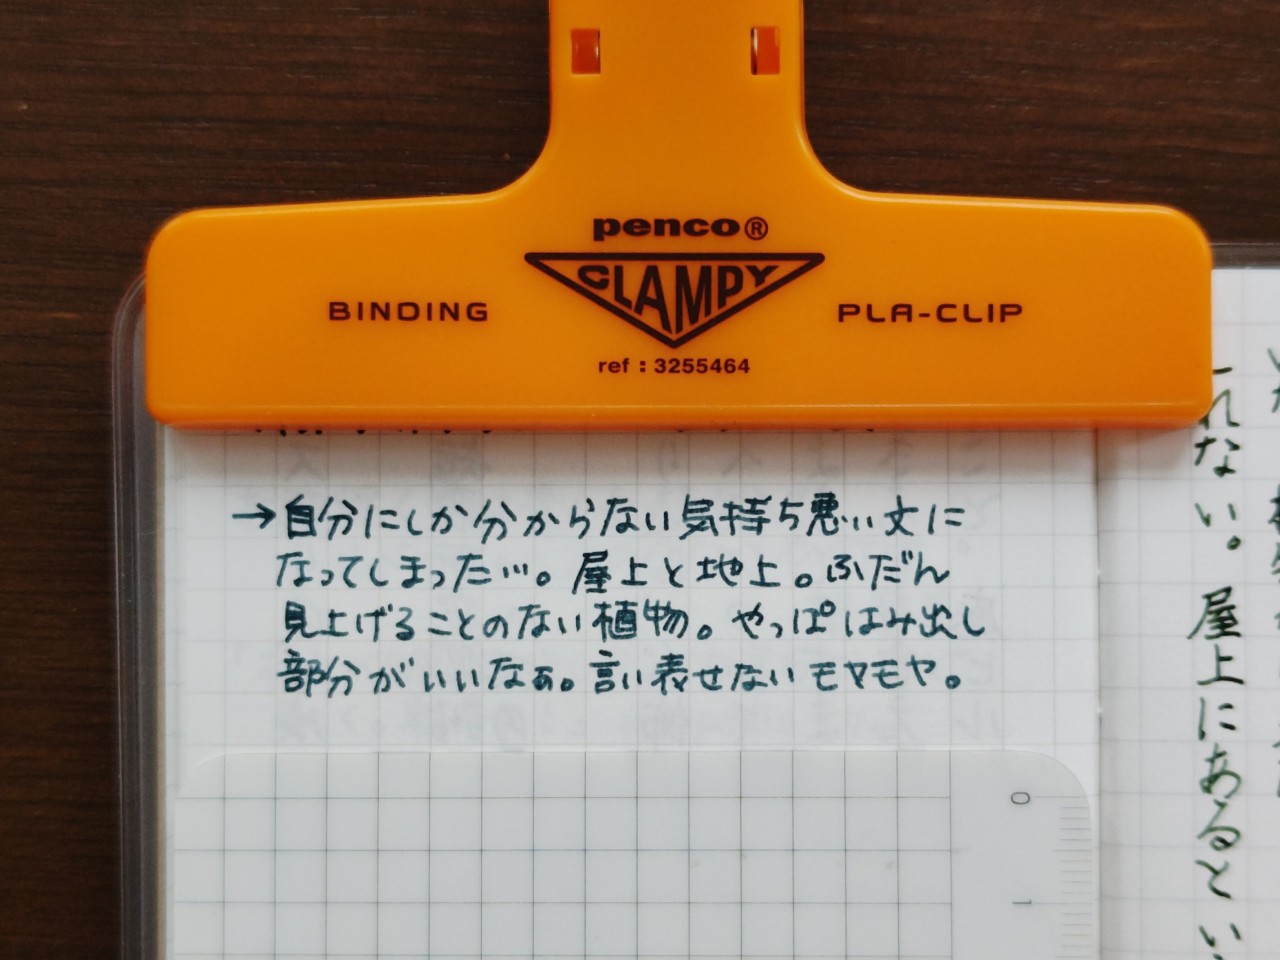 penco®
CLAMPY
BINDING
PLA-CLIP
ref : 3255464
→自分にしか分からない気持ち悪い文に
なってしまった…。屋上と地上。ふだん
見上げることのない植物。やっぱはみ出し
部分がいいなぁ。言い表せないモヤモヤ。
0
1
れない。屋上にあるとい